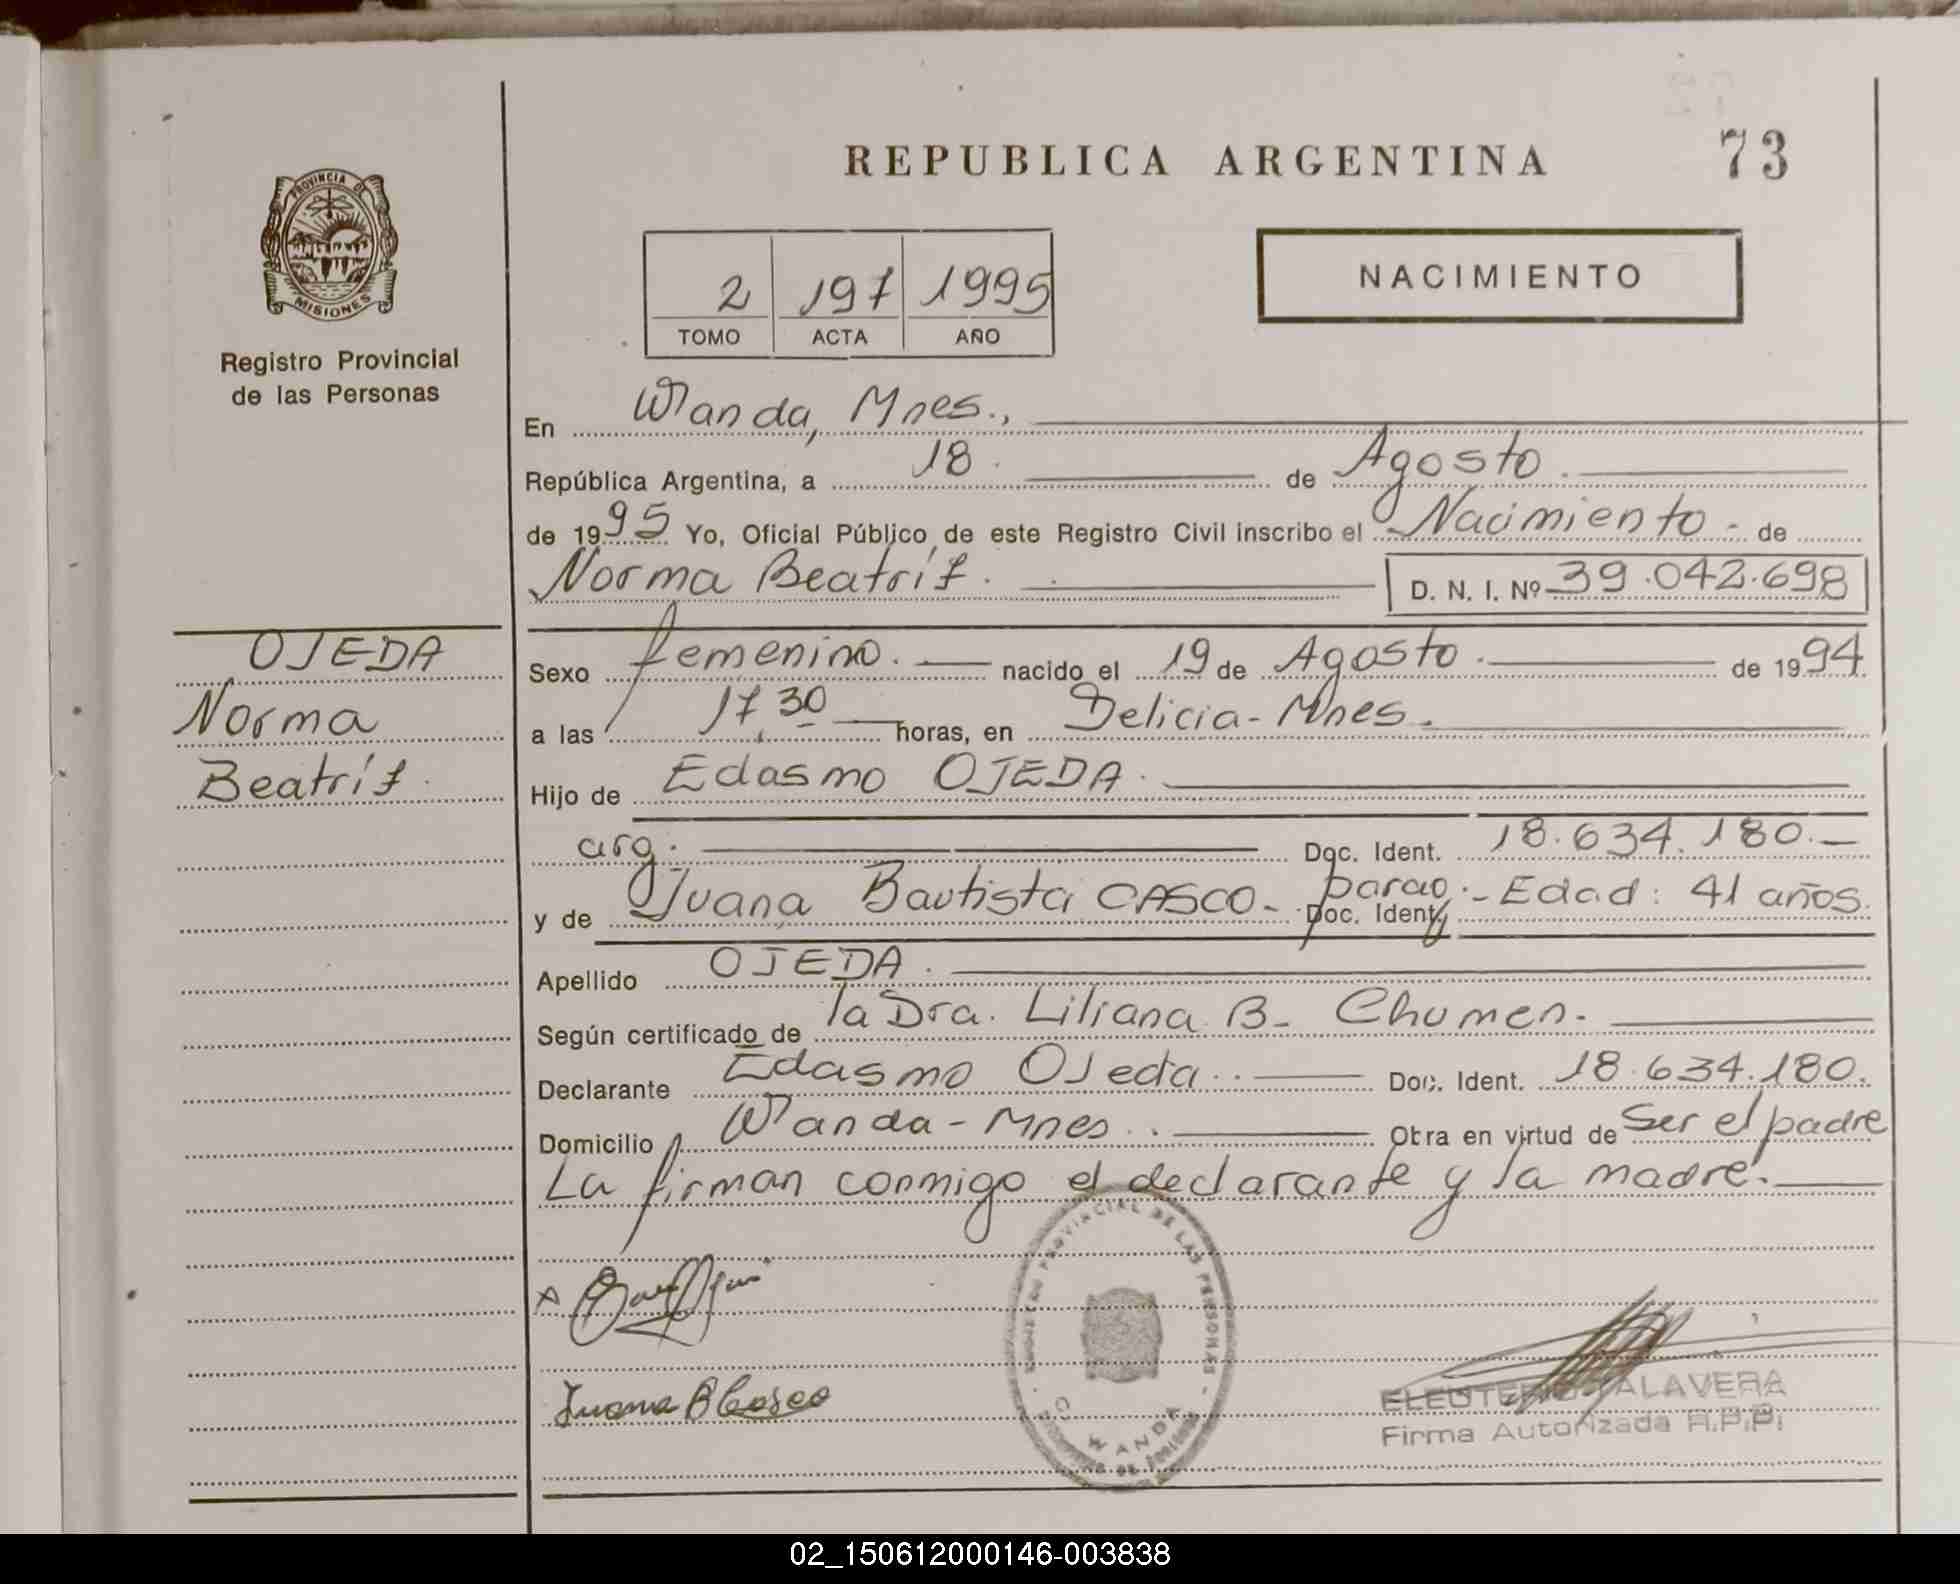 REPUBLICA ARGENTINA
73
PROVINCIA DE
MISIONES
Registro Provincial
de las Personas
2 197 1995
TOMO ACTA AÑO
NACIMIENTO
En Wanda, Mnes.,
República Argentina, a 18. de Agosto.
de 1995 Yo, Oficial Público de este Registro Civil inscribo el Nacimiento - de
Norma Beatríz. D. N. I. Nº 39.042.698
OJEDA
Norma
Beatríz.
Sexo femenino. nacido el 19 de Agosto. de 1994
a las 17,30 horas, en Delicia - Mnes.
Hijo de Edasmo OJEDA.
arg. Doc. Ident. 18.634.180.-
y de Juana Bautista CASCO - Doc. Ident. parag.- Edad: 41 años.
Apellido OJEDA.
Según certificado de la Dra. Liliana B. Chumen.
Declarante Edasmo Ojeda. Doc. Ident. 18.634.180.
Domicilio Wanda - Mnes. Obra en virtud de Ser el padre
La firman conmigo el declarante y la madre.
PROVINCIAL DE LAS PERSONAS
WANDA
Juana B Casco
ELEUTERIO TALAVERA
Firma Autorizada R.P.P.
02_150612000146-003838